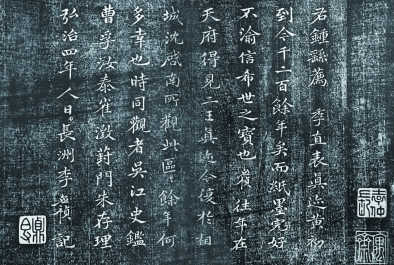 右鍾繇薦 季直表真迹黃初
到今千二百餘年矣而紙墨完好
不渝信希世之寶也 往年在
天府得見二王真迹今復於相
城沈啓南所觀此區〻餘年何
多幸也時同觀者吳江史鑑
曹孚汝泰崔澂葑門朱存理
弘治四年人日長洲李應禎記